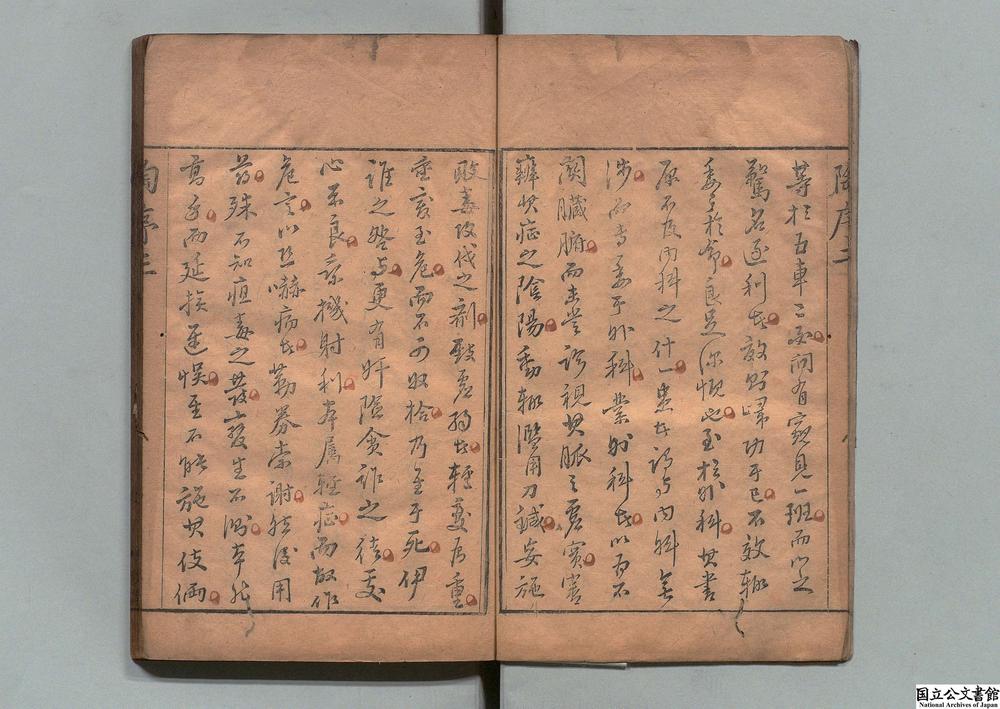 陶序二
等於五車二酉間有窺見一班而以之
驚名逐利者效則歸功于已不效輒
委之於命良足深恨至於外科其書
原不及內科之什一患者謂與內科無
涉而專委于外科業外科者以為不
關臟腑而未嘗診視其脈之虛實審
辨其症之陰陽動輒濫用刀鍼妄施
敗毒攻伐之劑致虛弱者輕變為重
重變至危而不可收拾乃至于死伊
誰之咎與更有奸險貪詐之徒處
心不良乘機射利本屬輕症而故作
危言以恐嚇病者勒券索謝然後用
藥殊不知疽毒之發變生不測卒然
高手而延挨遲悞至不能施其伎倆
陶序三
国立公文書館
National Archives of Japan